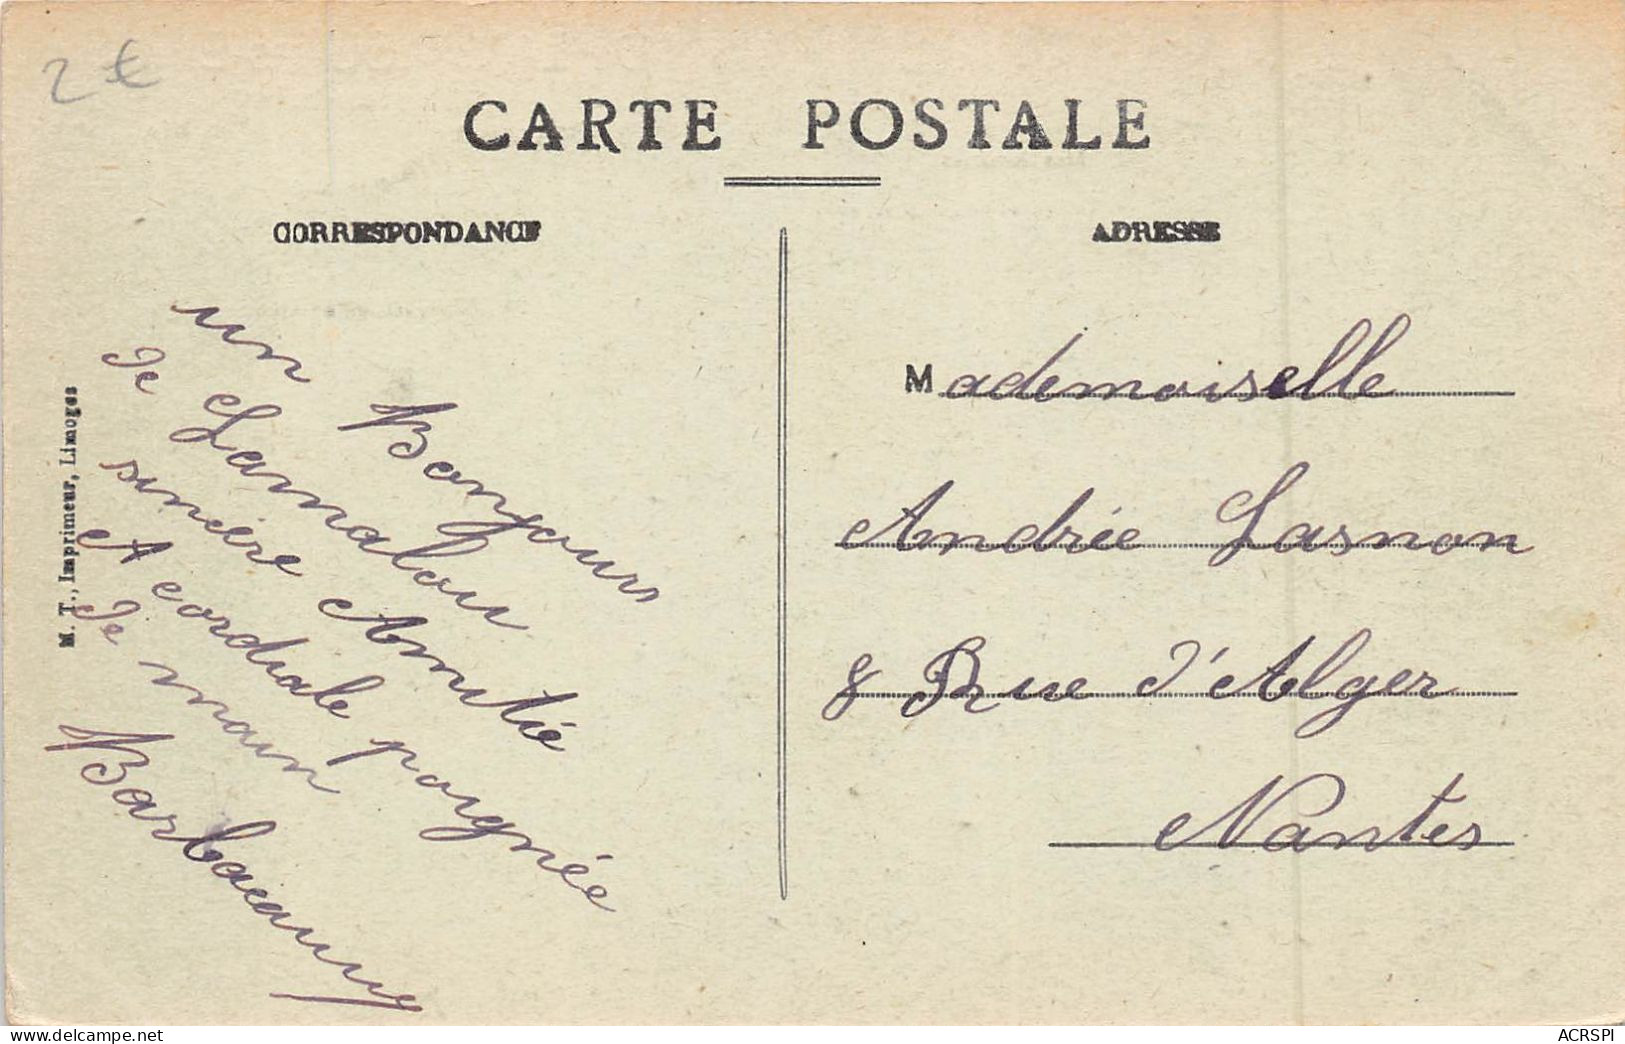 2 €
CARTE POSTALE
CORRESPONDANCE
ADRESSE
un Bonjour
de Lamalou
sincère Amitié
A cordiale poignée
de main
M. T., Imprimeur, Limoges
Mademoiselle
Andrée Lasnon
8 Rue d'Alger
Nantes
www.delcampe.net
ACRSPI